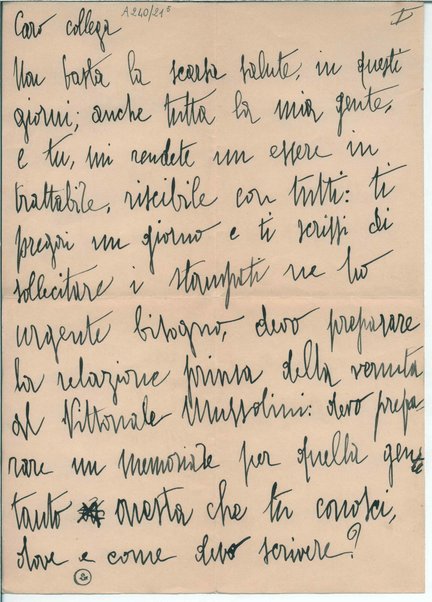 Caro collega A240/21⁵ I
Non basta la scarsa salute, in questi
giorni; anche tutta la mia gente,
e tu, mi rendete un essere in
trattabile, riscibile con tutti: ti
pregai un giorno e ti scrissi di
sollecitare i stampati ne ho
urgente bisogno, devo preparare
la relazione prima della venuta
al Vittoriale Mussolini: devo prepa-
rare un memoriale per quella gente
tanto onesta che tu conosci,
dove e come devo scrivere?